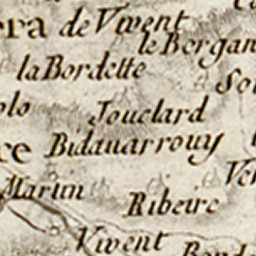 era de Vivent
le Bergan
la Bordette
olo
Jouclard
ce Bidauarrouy
Marim
Ribeire
Vivent